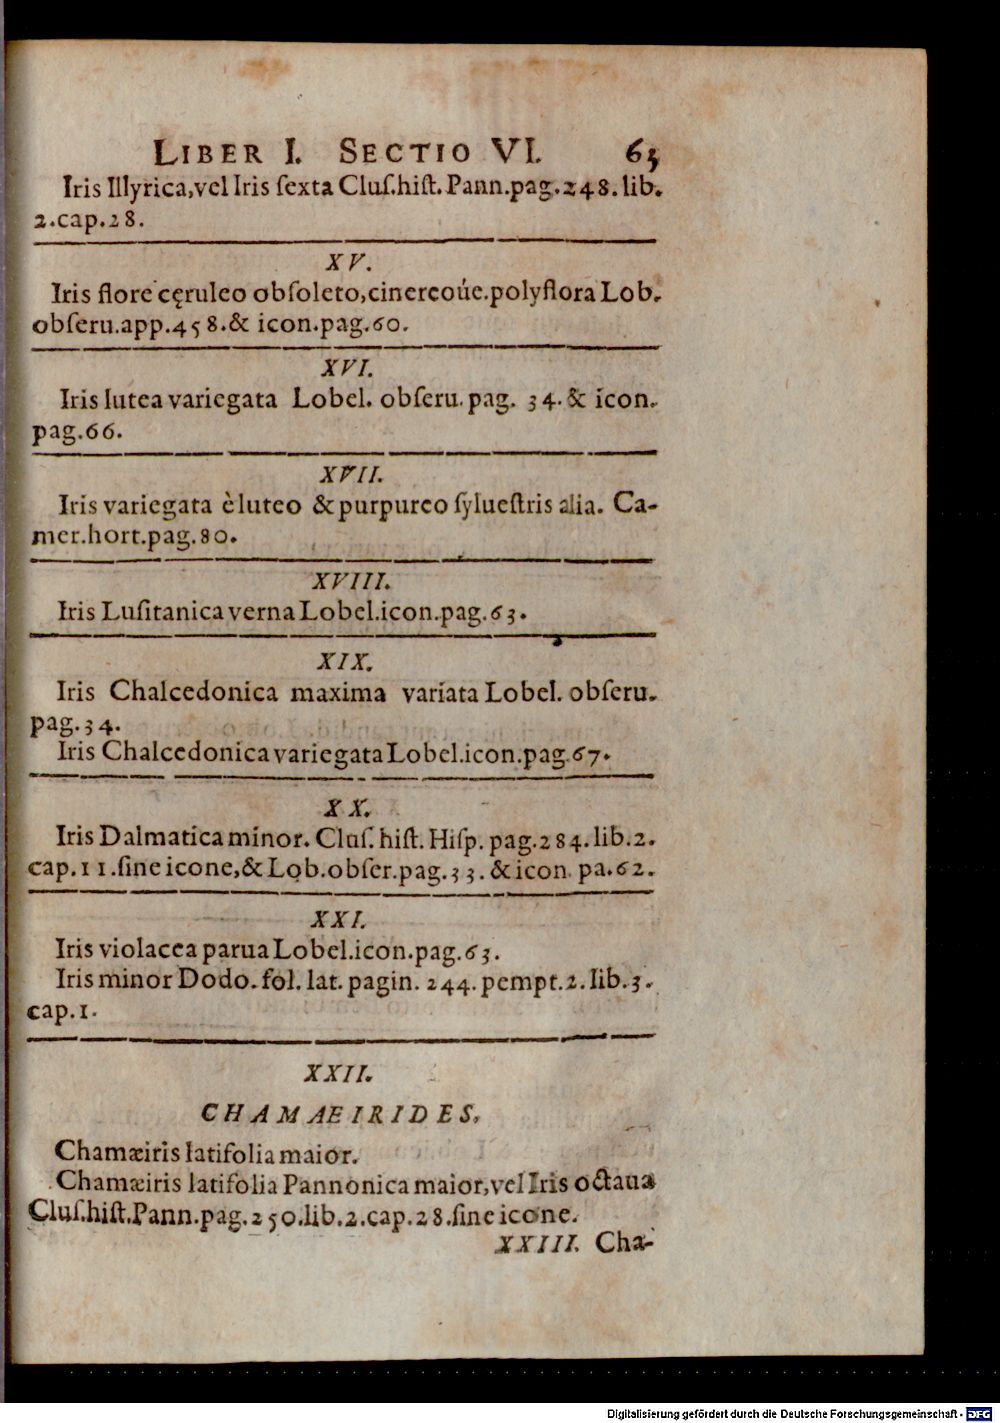 LIBER I. SECTIO VI. 63
Iris Illyrica,vel Iris ſexta Cluſ.hiſt.Pann.pag.248.lib.
2.cap.28.
XV.
Iris flore cęruleo obſoleto,cinereoúe.polyflora Lob.
obſeru.app.458.& icon.pag.60.
XVI.
Iris lutea variegata Lobel. obſeru. pag. 34. & icon.
pag.66.
XVII.
Iris variegata è luteo & purpureo ſylueſtris alia. Ca-
mer.hort.pag.80.
XVIII.
Iris Luſitanica verna Lobel.icon.pag.63.
XIX.
Iris Chalcedonica maxima variata Lobel. obſeru.
pag.34.
Iris Chalcedonica variegata Lobel.icon.pag.67.
XX.
Iris Dalmatica minor. Cluſ. hiſt. Hiſp. pag.284.lib.2.
cap.11.ſine icone,& Lob.obſer.pag.33. & icon. pa.62.
XXI.
Iris violacea parua Lobel.icon.pag.63.
Iris minor Dodo. fol. lat. pagin. 244. pempt.2. lib.3.
cap.1.
XXII.
CHAMAEIRIDES.
Chamæiris latifolia maior.
Chamæiris latifolia Pannonica maior,vel Iris octaua
Cluſ.hiſt.Pann.pag.250.lib.2.cap.28.ſine icone.
XXIII. Cha-
Digitalisierung gefördert durch die Deutsche Forschungsgemeinschaft - DFG